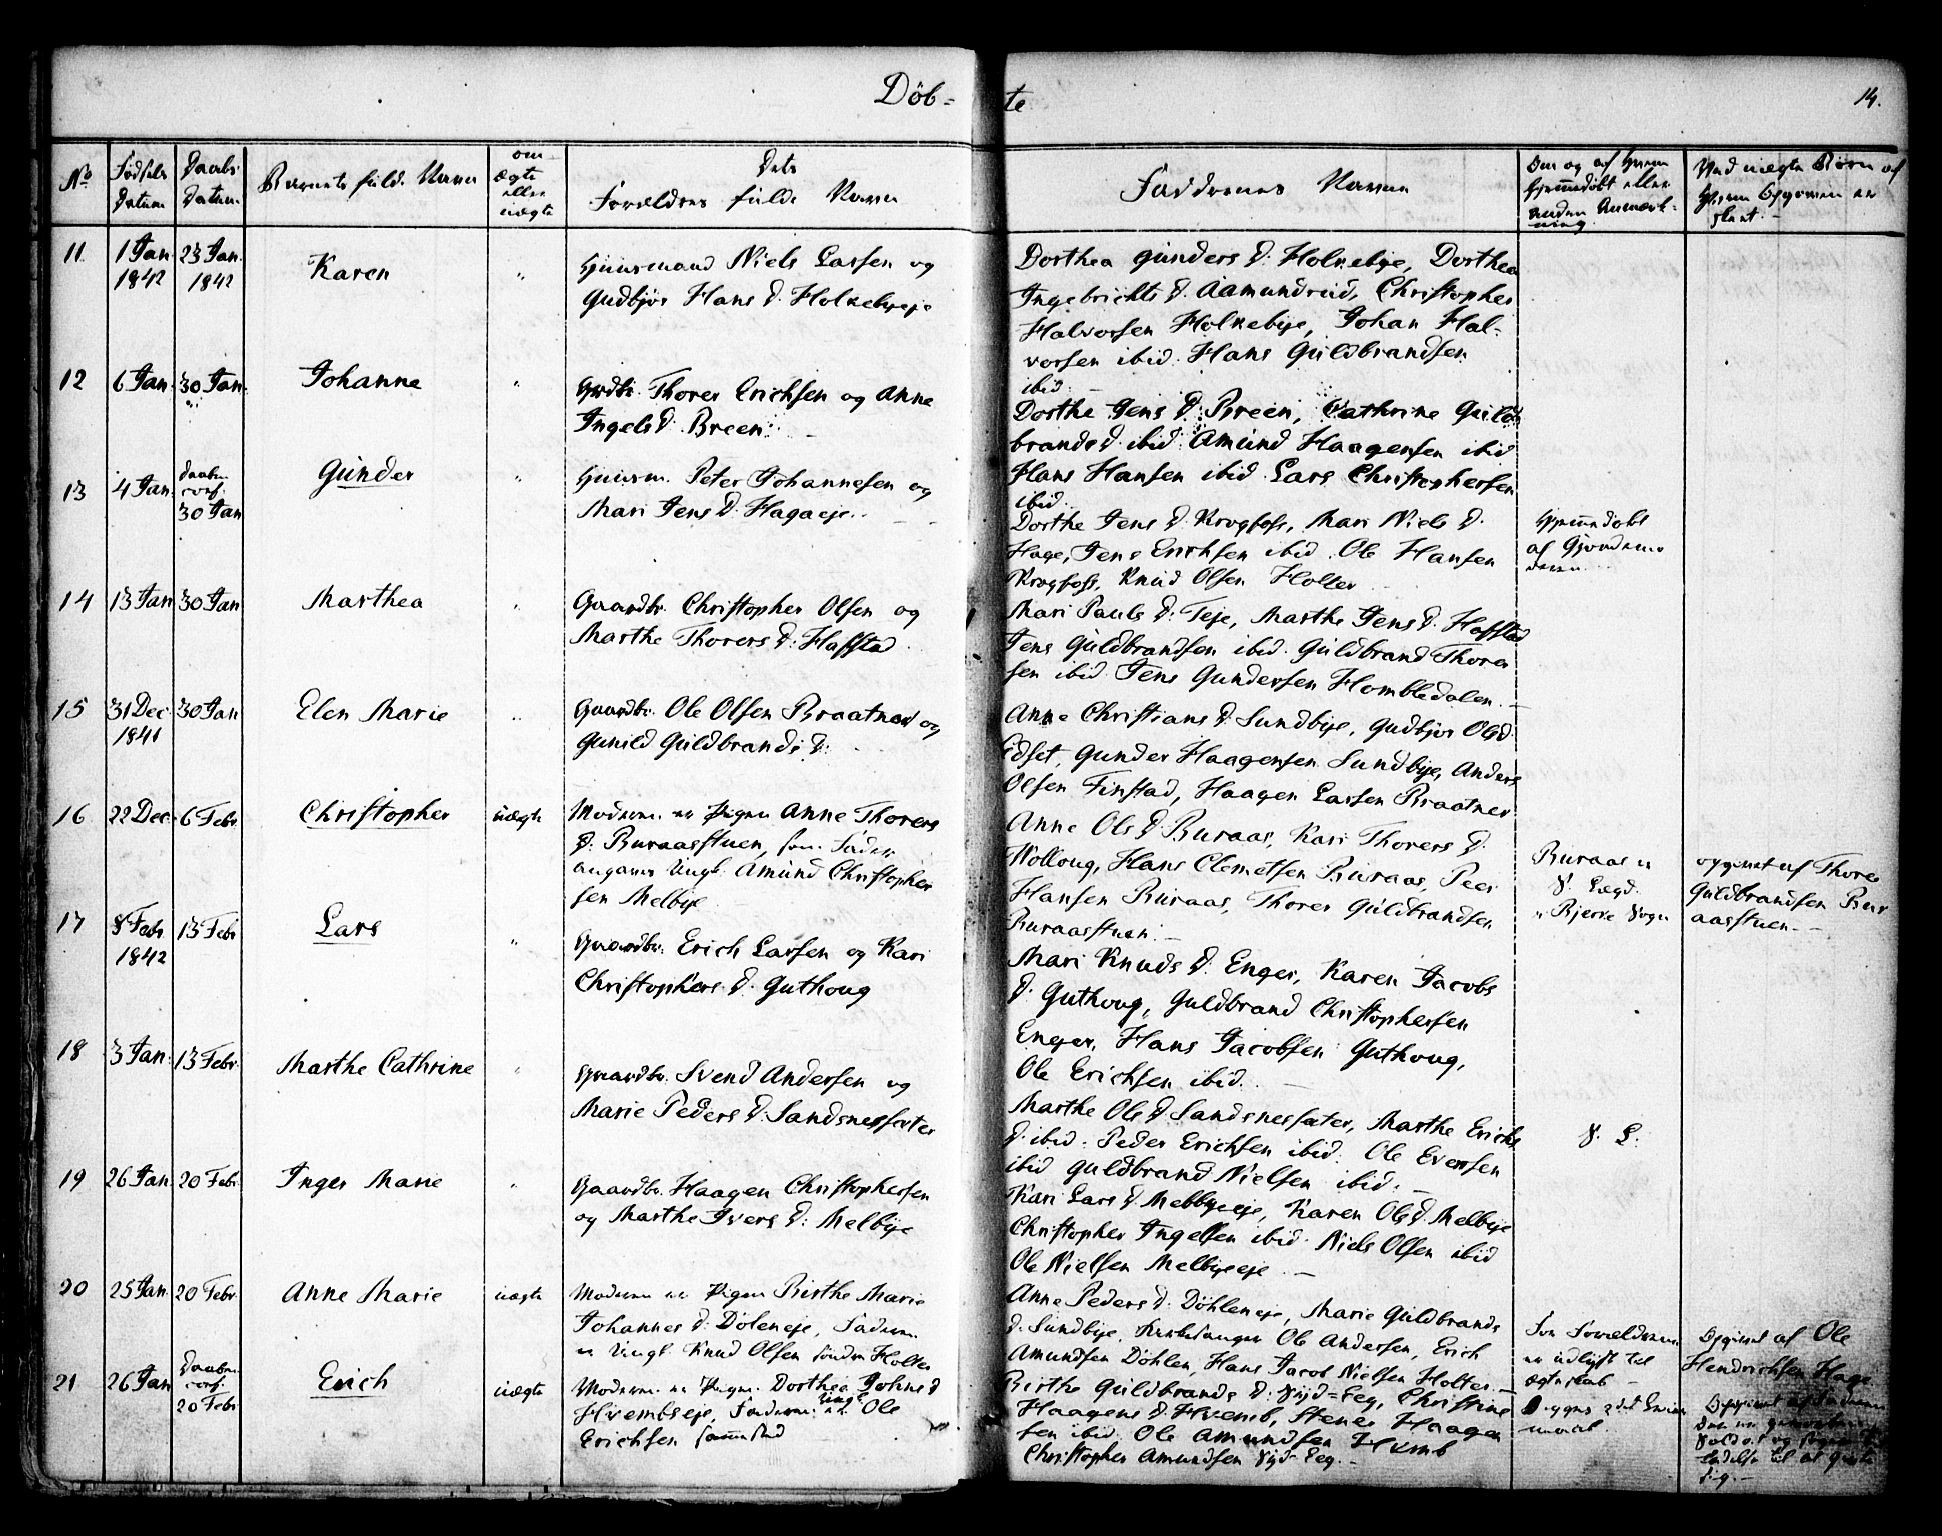 Döb-
te
14.
No
Fødsels
Datum
Daabs
Datum
Barnets fulde Navn
om
ægte
eller
uægte
Dets
Forældres fulde Navn
Faddrenes Navne
Om og af hvem
hjemmedøbt eller
anden Anmærk-
ning
Ved uægte Børn af
hvem Opgiven er
skeet. -
11.
1 Jan
1842
23 Jan.
1842
Karen
"
Huusmand Niels Larsen og
Gudbjør Hans D. Holkebyeje
Dorthea Gunders D: Holkebye, Dorthea
Ingebrichts D. Aamundrud, Christopher
Halvorsen Holkebye, Johan Hal-
vorsen ibid. Hans Guldbrandsen
ibid. -
12
6 Jan.
30 Jan.
Johanne
"
Grdbr. Thorer Erichsen og Anne
Ingels D. Breen. -
Dorthe Jens D: Breen, Cathrine Guld-
brands D. ibid. Amund Haagensen ibid
Hans Hansen ibid. Lars Christophersen
ibid.
13
4 Jan.
Daaben
conf.
30 Jan
Gunder
"
Huusm. Peter Johannesen og
Mari Jens D. Hagaeje. -
Dorthe Jens D. Krogfoss, Mari Niels D.
Hage, Jens Erichsen ibid. Ole Hansen
Krogfoss, Knud Olsen Holter
Hjemmedøbt
af Gjordemo
deren
14
13 Jan
30 Jan
Marthea
"
Gaardbr. Christopher Olsen og
Marthe Thorers D: Haffstad
Mari Pauls D: Teje, Marthe Jens D. Haffstad
Jens Guldbrandsen ibid. Guldbrand Thorer
sen ibid. Jens Gundersen Hombledalen. -
15
31 Dec.
1841
30 Jan
Elen Marie
"
Gaardbr. Ole Olsen Braatner og
Gunild Guldbrands D:
Anne Christians D. Sundbye, Gudbjør Ols D.
Edset, Gunder Haagensen Sundbye, Anders
Olsen Finstad, Haagen Larsen Braatner
16
22 Dec.
6 Febr.
Christopher
uægte
Moderen er Pigen Anne Thorers
D. Buraasstuen, som Fader
angaves Ungk. Amund Christopher
sen Melbye
Anne Ols D. Buraas, Kari Thorers D.
Nolloug, Hans Clemetsen Buraas, Peer
Hansen Buraas, Thorer Guldbrandsen
Buraasstuen. -
Buraas
L
Bjerke Sogn
opgivet af Thorer
Guldbrandsen Bur
aasstuen. -
17
8 Febr.
1842
13 Febr
Lars
"
Gaardbr. Erich Larsen og Kari
Christophers D. Guthoug
Mari Knuds D. Enger, Karen Jacobs
D. Guthoug, Guldbrand Christophersen
Enger, Hans Jacobsen Guthoug,
Ole Erichsen ibid. -
18
3 Jan.
13 Febr.
Marthe Cathrine
"
Gaardbr. Svend Andersen og
Marie Peders D. Sandsnessæter
Marthe Ols D. Sandsnessæter, Marthe Erichs
D. ibid. Peder Erichsen ibid. Ole Eversen
ibid Guldbrand Nielsen ibid. -
19
26 Jan.
20 Febr.
Inger Marie
"
Gaardbr. Haagen Christophersen
og Marthe Ivers D: Melbye
Kari Lars D. Melbyeeje, Karen Ols D. Melbye
Christopher Ingelsen ibid. Niels Olsen ibid
Ole Nielsen Melbyeeje. -
20
25 Jan.
20 Febr.
Anne Marie
uægte
Moderen er Pigen Birthe Marie
Johannes D: Döleneje, Faderen
er Ungk. Knud Olsen søndre Holter
Anne Peders D: Döhleneje, Marie Guldbrands
D. Sundbye, Kirkesanger Ole Andersen, Erich
Amundsen Döhlen, Hans Jacob Nielsen Holter. -
For Forældrene
er udlyst til
Ægteskab -
Opgivet af Ole
Hendrichsen Hage
21
26 Jan
Daaben
conf.
20 Febr
Erich
uægte
Moderen er Pigen Dorthea Johns D
Hvembseje, Faderen er Ungk. Ole
Erichsen sammested
Birthe Guldbrands D. Eeg, Christine
Haagens D. Hvemb, Stener Haagen
sen ibid. Ole Amundsen Hvemb
Christopher Amundsen Eeg. -
Begges 2det Leier
maal.
Opgivet af Faderen
til at gifte
sig. -